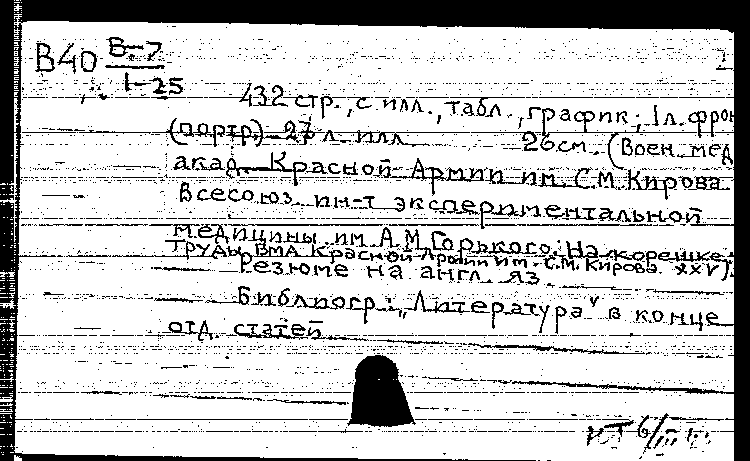 В40 Б-7
1-25
432 стр., с илл., табл., график; 1 л. фрон
(портр.) 27 л. илл. 26 см. (Воен. мед
акад. Красной Армии им. С.М. Кирова
Всесоюз. ин-т экспериментальной
медицины им. А.М. Горького. На корешке:
Труды ВМА Красной Армии им. С.М. Кирова. XXV).
Резюме на англ. яз.
Библиогр.: „Литература" в конце
отд. статей